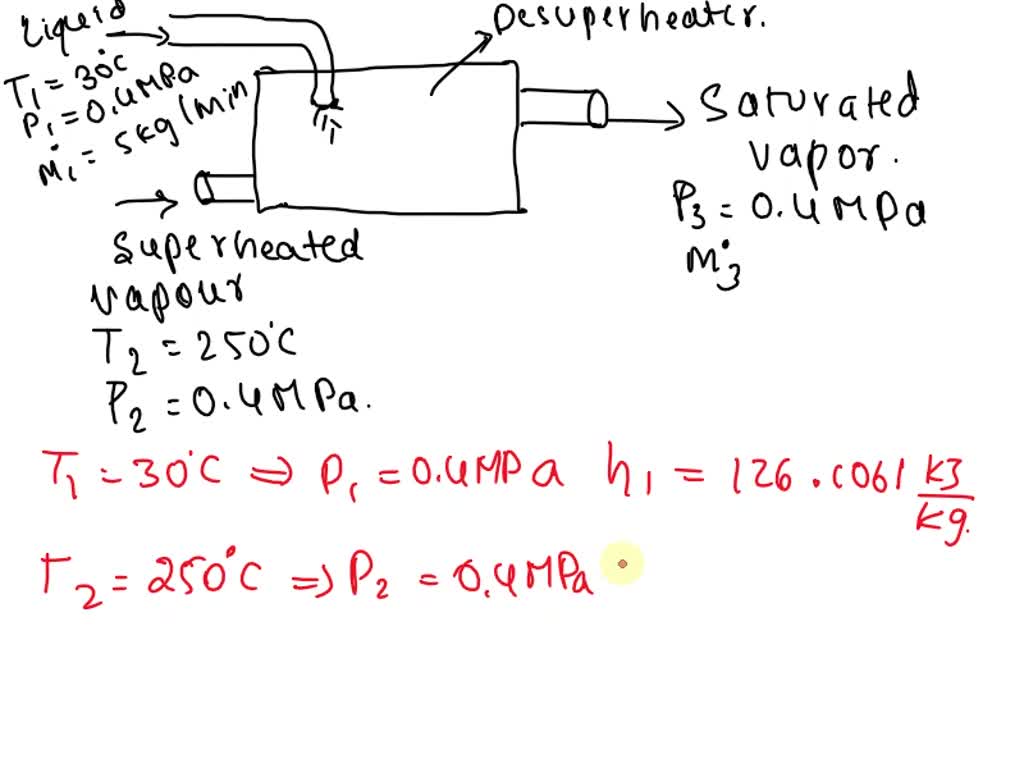 Liquid
T₁ = 30°C
P₁ = 0.4MPa
ṁ₁ = 5kg/min
Desuperheater.
Saturated
vapor.
P₃ = 0.4MPa
ṁ₃
Superheated
vapour
T₂ = 250°C
P₂ = 0.4MPa.
T₁ = 30°C ⇒ P₁ = 0.4MPa h₁ = 126.1061 kJ/kg.
T₂ = 250°C ⇒ P₂ = 0.4MPa